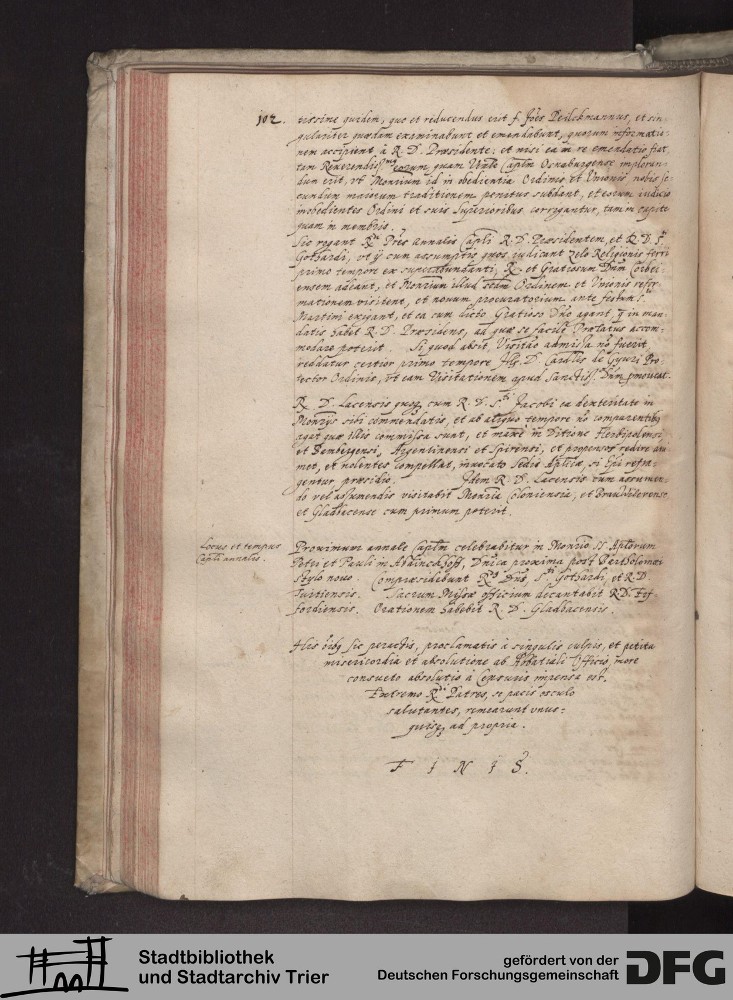 102. tissime quidem, quo et reducendus erit f. Joes Peilckmannus, et sin-
gulariter quædam examinabunt et emendabunt, quorum informatio-
nem accipient à R. D. Præsidente: et nisi ea in re emendatio fiat,
tam Reverendiss. quam Vnale Capłm Osnaburgense imploran-
dum erit, vt Monrium id in obedientia Ordinis et Vnionis nobis se-
cundum maiorum traditionem penitus subdant, et eorum iudicio
inobedientes Ordini et suis Superioribus corrigantur, tam in capite
quam in membris.
Sic rogant Rdi Pres Annalis Capli R. D. Præsidentem, et R. D. S.
Gothardi, vt ij cum assumptis quos iudicant zelo Religionis ferri
primo tempore ex superabundanti, R. et Gratiosum Dnm Corbei-
ensem adeant, et Monrium illud scdm Ordinem et Vnionis refor-
mationem visitent, et nouum procuratorium ante festum S.
Martini exigant, et ea cum dicto Gratioso Dno agant, q in man-
datis habet R. D. Præsidens, ad quæ se facile Prælatus accom-
modare poterit. Si quod absit Visitao admissa no fuerit,
reddatur certior primo tempore Ills. D. Cardlis de Gyuri Pro-
tector Ordinis, vt eam Visitationem apud Sanctiss. Dnm promoueat.
R. D. Lacensis quoq, cum R. D. S. Jacobi ea dexteritate in
Monrys sibi commendatis, et ab aliquo tempore no comparentibq
agat quæ illis commissa sunt, et maxe in Ditione Herbipolensi
et Bembergensi, Argentinensi et Spirensi, et propensos redire ani-
met, et nolentes compellat, inuocato Sedis Aplicæ, si Epi refra-
gentur præsidio. Idem R. D. Lacensis cum assumen-
do vel assumendis visitabit Monria Coloniensia, et Brauwilerense
et Gladbacense cum primum poterit.
Locus et tempus
Capli annalis.
Proximum annale Capłm celebrabitur in Monrio SS. Aplorum
Petri et Pauli in Abdinckhoff, Dnica proxima post Bartholomæi
stylo nouo. Compræsidebunt Rdo Dnus, S. Gothardi, et R. D.
Tuitiensis. Sacrum Missæ officium decantabit R. D. Erf-
fordiensis. Orationem habebit R. D. Gladbacensis.
His oibq sic peractis, proclamatis à singulis culpis, et petita
misericordia et absolutione ab Abbatiali Officio, more
consueto absolutio à Censuris impensa est.
Extremo Rdi Patres, se pacis osculo
salutantes, remearunt vnus-
quisq ad propria.
F I N I S.
Stadtbibliothek
und Stadtarchiv Trier
gefördert von der
Deutschen Forschungsgemeinschaft
DFG